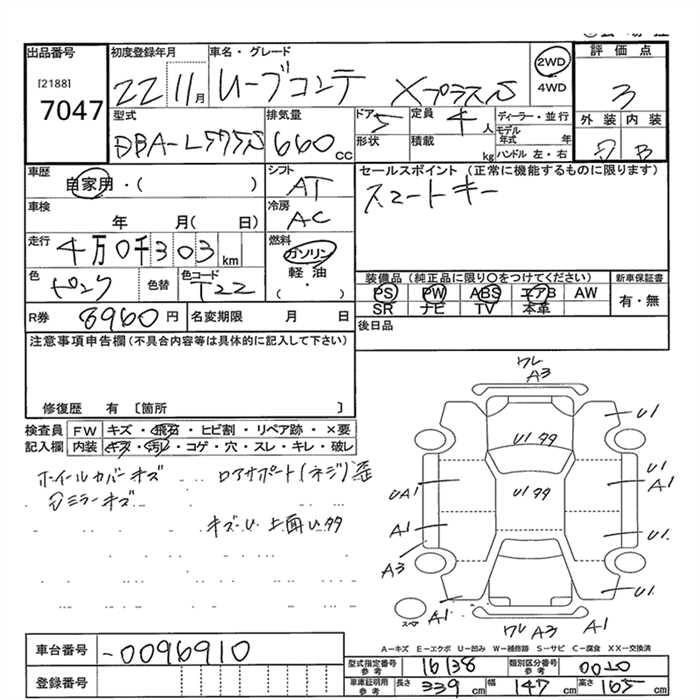 出品番号
[2188]
7047
初度登録年月
22 11月
車名・グレード
ムーブコンテ Xプラス/S
2WD
4WD
評価点
3
外装 内装
B
型式
DBA-L575S
排気量
660cc
ドア 5
形状
定員 4人
積載 kg
ディーラー・並行
モデル年式 年
ハンドル 左・右
車歴
自家用・( )
車検
年 月( 日)
走行
4万0千303km
色
ピンク
色替
色コード
T22
シフト
AT
冷房
AC
燃料
ガソリン
軽油
( ・ )
セールスポイント (正常に機能するものに限ります)
スマートキー
装備品 (純正品に限り○をつけてください)
PS PW ABS エアB AW
SR ナビ TV 本革
新車保証書
有・無
後日品
R券 8960円
名変期限 月 日
注意事項申告欄(不具合内容等は具体的に記入して下さい)
修復歴 有 〔箇所 〕
検査員記入欄
FW キズ・飛石・ヒビ割・リペア跡・×要
内装 キズ・汚レ・コゲ・穴・スレ・キレ・破レ
ホイールカバーキズ ロアサポート(ネジ)歪
ミラーキズ
キズU 上面Uタタ
ワレ
A3
U1
Uタタ
U1
A1
UA1
Uタタ
A1
U1
A3
U1
スペア
A1
ワレ A3 A1
A-キズ E-エクボ U-凹み W-補修跡 S-サビ C-腐食 XX-交換済
車台番号
-0096910
登録番号
型式指定番号 参考 16138
類別区分番号 参考 0020
車庫証明用 参考 長さ 339cm 幅 147cm 高さ 165cm